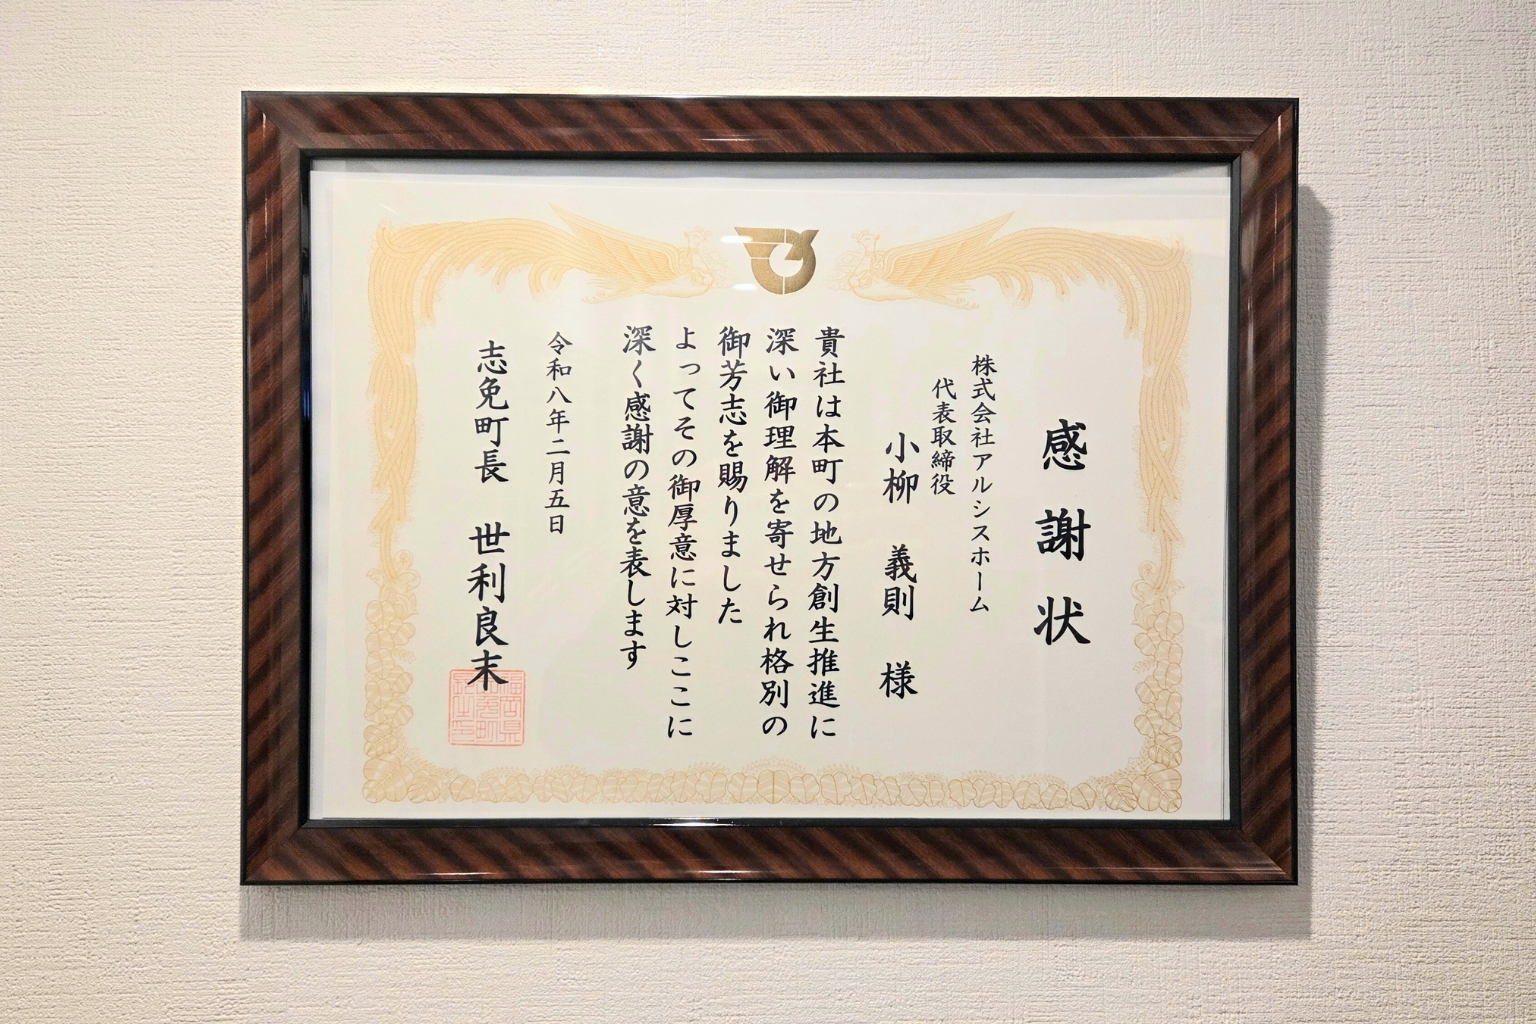 感謝状
株式会社アルシスホーム
代表取締役
小柳 義則 様
貴社は本町の地方創生推進に
深い御理解を寄せられ格別の
御芳志を賜りました
よってその御厚意に対しここに
深く感謝の意を表します
令和八年二月五日
志免町長 世利良末